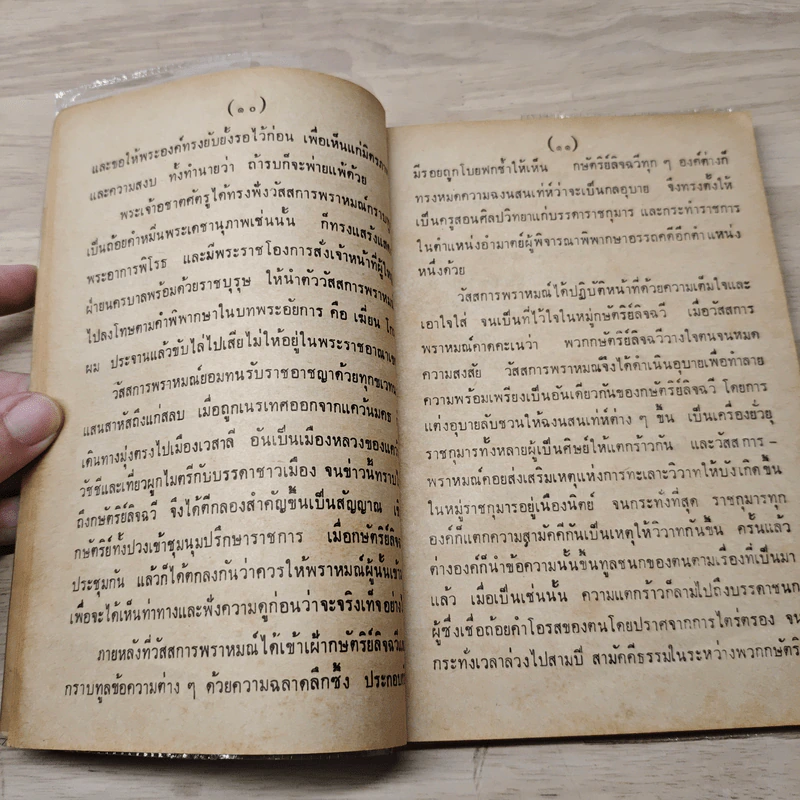 (๑๐)
และขอให้พระองค์ทรงยับยั้งรอไว้ก่อน เพื่อเห็นแก่มิตรภาพ
และความสงบ ทั้งทำนายว่า ถ้ารบก็จะพ่ายแพ้ด้วย
พระเจ้าอชาตศัตรูได้ทรงฟังวัสสการพราหมณ์กราบทูล
เป็นถ้อยคำหมิ่นพระเดชานุภาพเช่นนั้น ก็ทรงแสร้งแสดง
พระอาการพิโรธ และมีพระราชโองการสั่งเจ้าหน้าที่ผู้ใหญ่
ฝ่ายนครบาลพร้อมด้วยราชบุรุษ ให้นำตัววัสสการพราหมณ์
ไปลงโทษตามคำพิพากษาในบทพระอัยการ คือ เฆี่ยน โกน
ผม ประจานแล้วขับไล่ไปเสียไม่ให้อยู่ในพระราชอาณาเขต
วัสสการพราหมณ์ยอมทนรับราชอาชญาด้วยทุกขเวทนา
แสนสาหัสถึงแก่สลบ เมื่อถูกเนรเทศออกจากแคว้นมคธ
เดินทางมุ่งตรงไปเมืองเวสาลี อันเป็นเมืองหลวงของแคว้น
วัชชีและเที่ยวผูกไมตรีกับบรรดาชาวเมือง จนข่าวนี้ทราบ
ถึงกษัตริย์ลิจฉวี จึงได้ตีกลองสำคัญขึ้นเป็นสัญญาณ
กษัตริย์ทั้งปวงเข้าชุมนุมปรึกษาราชการ เมื่อกษัตริย์ลิจฉวี
ประชุมกัน แล้วก็ได้ตกลงกันว่าควรให้พราหมณ์ผู้นั้นเข้า
เพื่อจะได้เห็นท่าทางและฟังความดูก่อนว่าจะจริงเท็จอย่างไร
ภายหลังที่วัสสการพราหมณ์ได้เข้าเฝ้ากษัตริย์ลิจฉวี
กราบทูลข้อความต่าง ๆ ด้วยความฉลาดลึกซึ้ง ประกอบ
(๑๑)
มีรอยถูกโบยฟกช้ำให้เห็น กษัตริย์ลิจฉวีทุก ๆ องค์ต่างก็
ทรงหมดความฉงนสนเท่ห์ว่าจะเป็นกลอุบาย จึงทรงตั้งให้
เป็นครูสอนศิลปวิทยาแก่บรรดาราชกุมาร และกระทำราชการ
ในตำแหน่งอำมาตย์ผู้พิจารณาพิพากษาอรรถคดีอีกตำแหน่ง
หนึ่งด้วย
วัสสการพราหมณ์ได้ปฏิบัติหน้าที่ด้วยความเต็มใจและ
เอาใจใส่ จนเป็นที่ไว้ใจในหมู่กษัตริย์ลิจฉวี เมื่อวัสสการ
พราหมณ์คาดคะเนว่า พวกกษัตริย์ลิจฉวีวางใจตนจนหมด
ความสงสัย วัสสการพราหมณ์จึงได้ดำเนินอุบายเพื่อทำลาย
ความพร้อมเพรียงเป็นอันเดียวกันของกษัตริย์ลิจฉวี โดยการ
แต่งอุบายลับชวนให้ฉงนสนเท่ห์ต่าง ๆ ขึ้น เป็นเครื่องยั่วยุ
ราชกุมารทั้งหลายผู้เป็นศิษย์ให้แตกร้าวกัน และวัสสการ–
พราหมณ์คอยส่งเสริมเหตุแห่งการทะเลาะวิวาทให้บังเกิดขึ้น
ในหมู่ราชกุมารอยู่เนืองนิตย์ จนกระทั่งที่สุด ราชกุมารทุก
องค์ก็แตกความสามัคคีกันเป็นเหตุให้วิวาทกันขึ้น ครั้นแล้ว
ต่างองค์ก็นำข้อความนั้นขึ้นทูลชนกของตนตามเรื่องที่เป็นมา
แล้ว เมื่อเป็นเช่นนั้น ความแตกร้าวก็ลามไปถึงบรรดาชนก
ผู้ซึ่งเชื่อถือยคำโอรสของตนโดยปราศจากการไตร่ตรอง จน
กระทั่งเวลาล่วงไปสามปี สามัคคีธรรมในระหว่างพวกกษัตริ